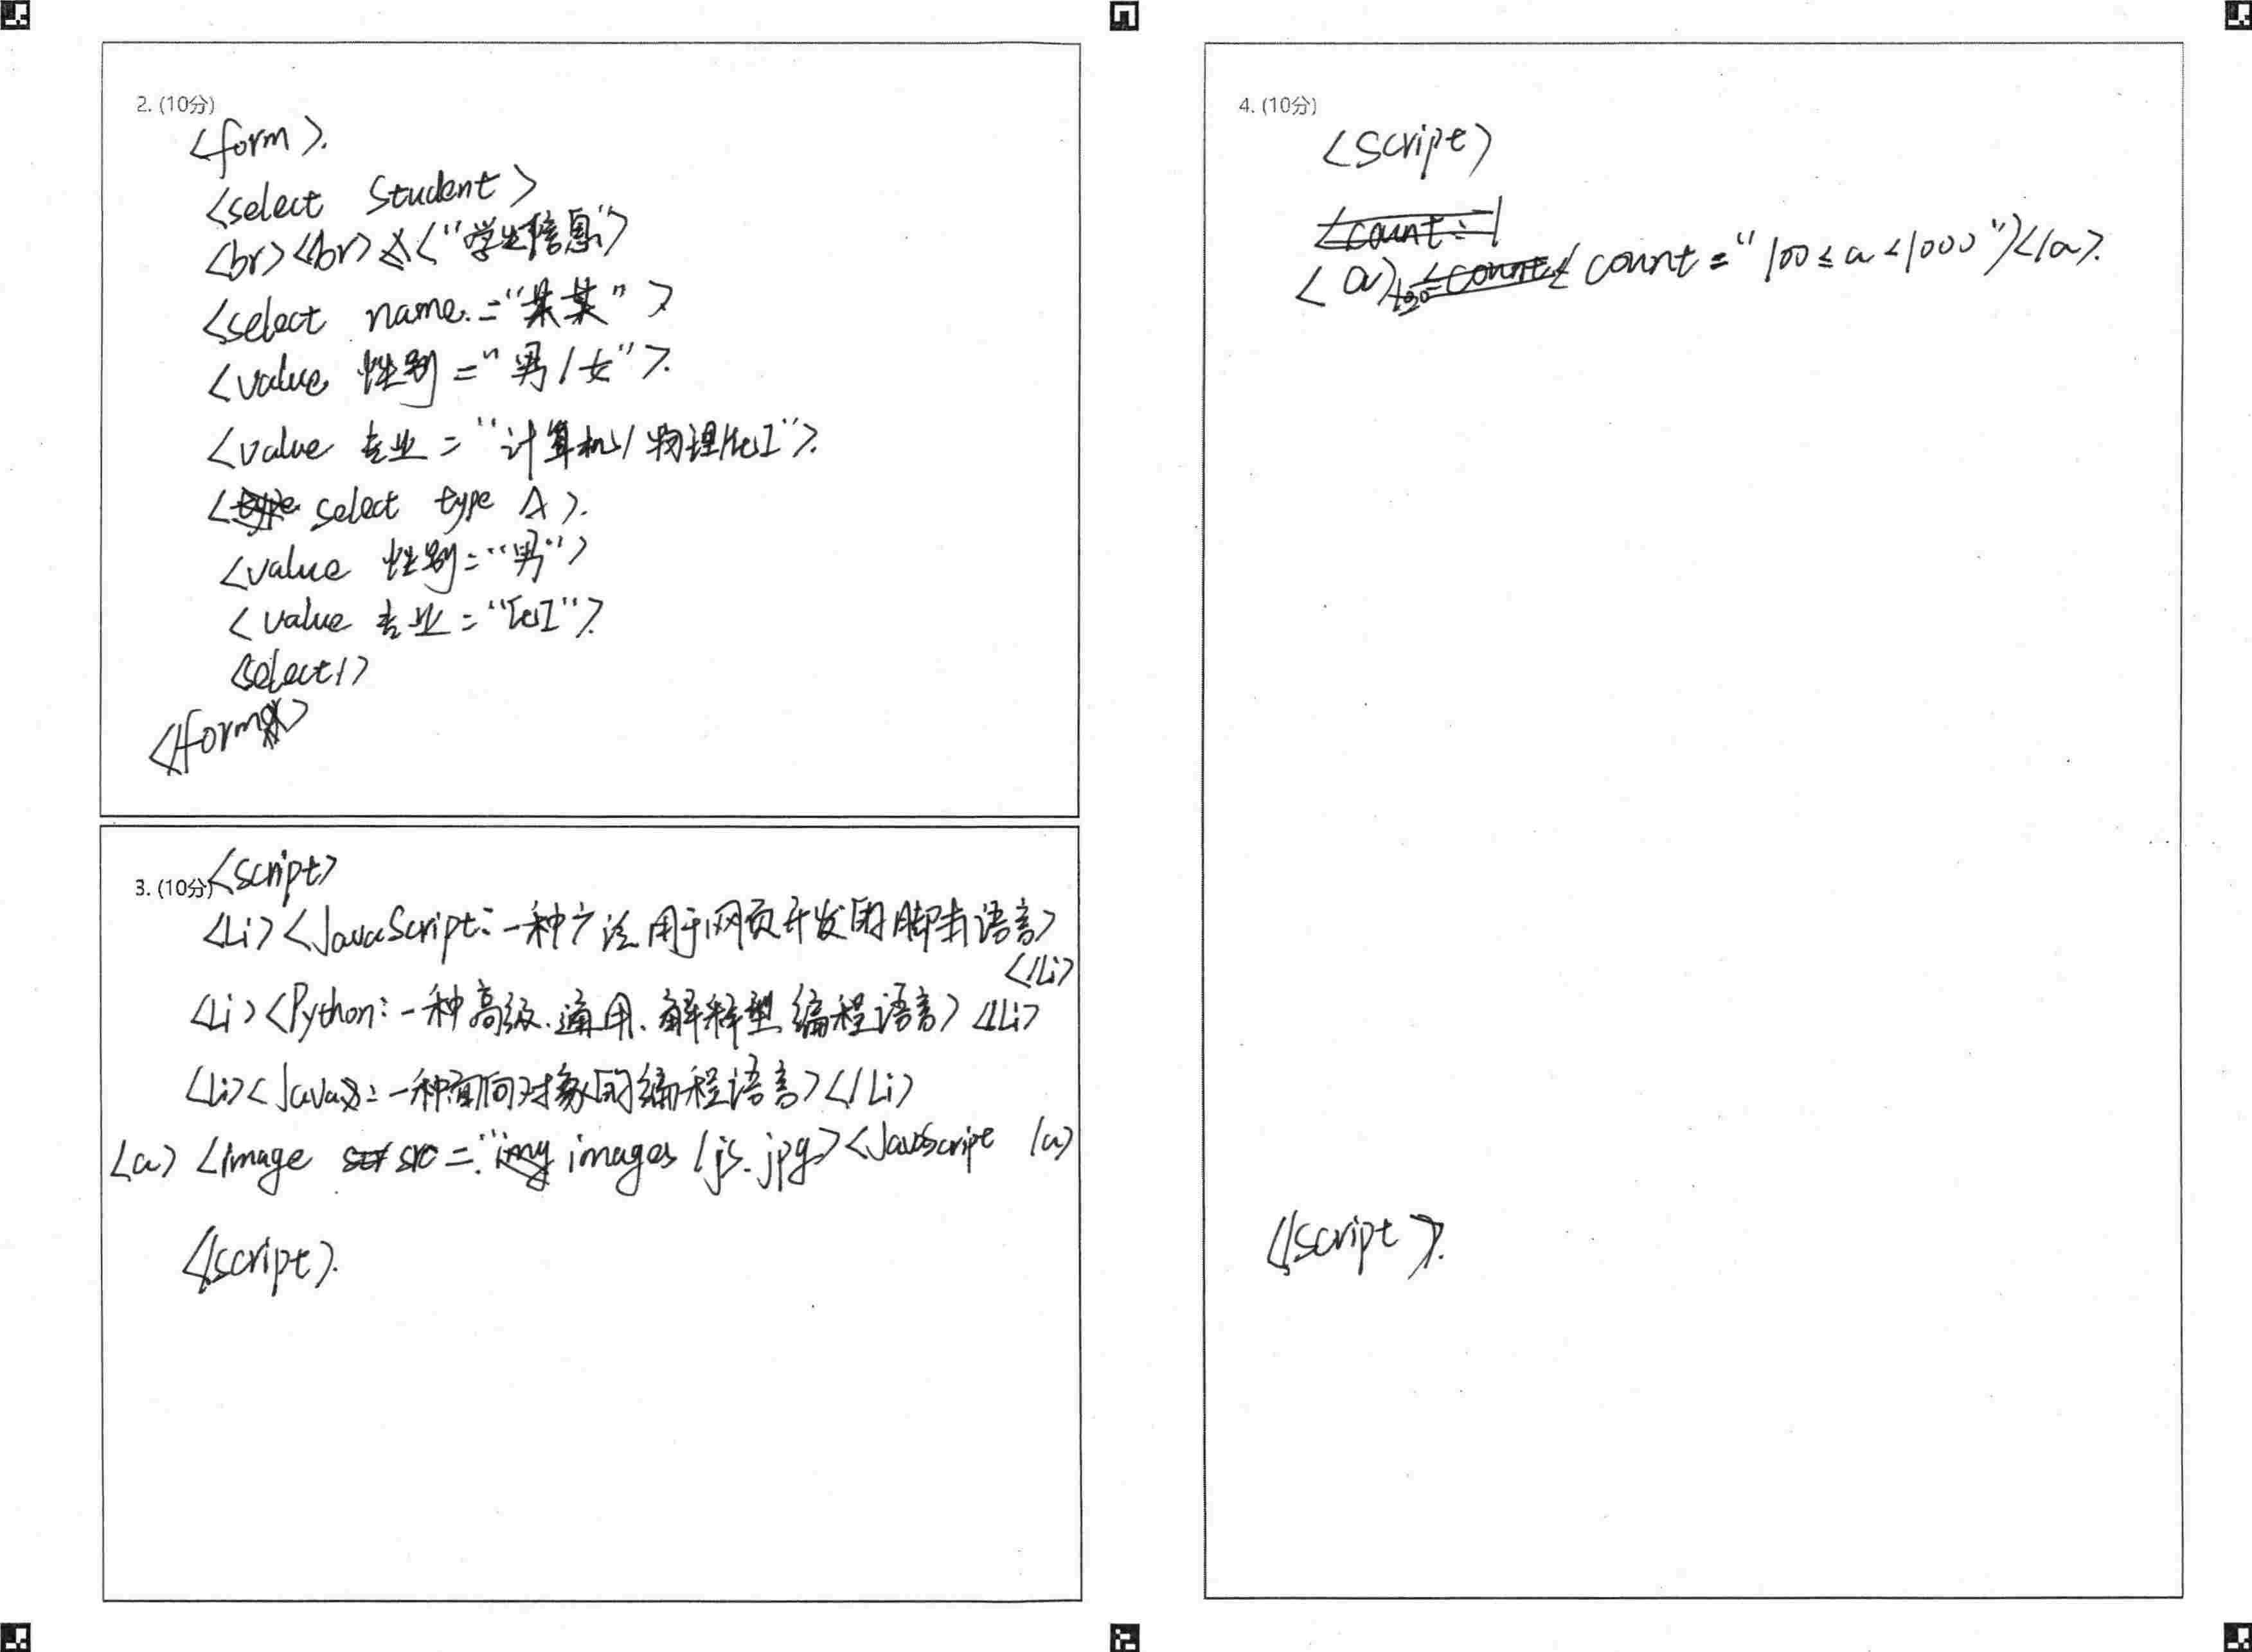 2. (10分)
<form>.
<select student>
<br><br> <"学生信息">
<select name.="某某">
<value 性别="男/女">.
<value 专业="计算机/物理/化工">.
< select type A>.
<value 性别="男">
<value 专业="化工">.
<select/>
</form>
3. (10分)
<script>
<Li><JavaScript:一种广泛用于网页开发的脚本语言>
</Li>
<Li><Python:一种高级、通用、解释型编程语言></Li>
<Li><Java:一种面向对象的编程语言></Li>
<a> <image src="images/js.jpg><JavaScript /a>
</script>.
4. (10分)
<script>
<a> < count="100≤a<1000"></a>.
</script>.